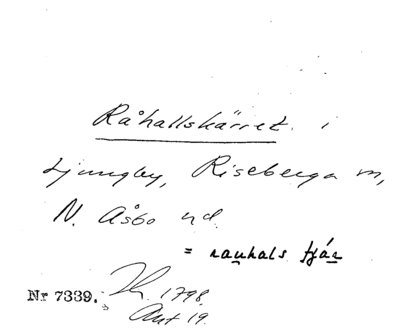 Råhallskärret i
Ljungby, Riseberga sn,
N. Åsbo hd.
= rauhals tjár
Nr 7339. 1798.
Ant 19.